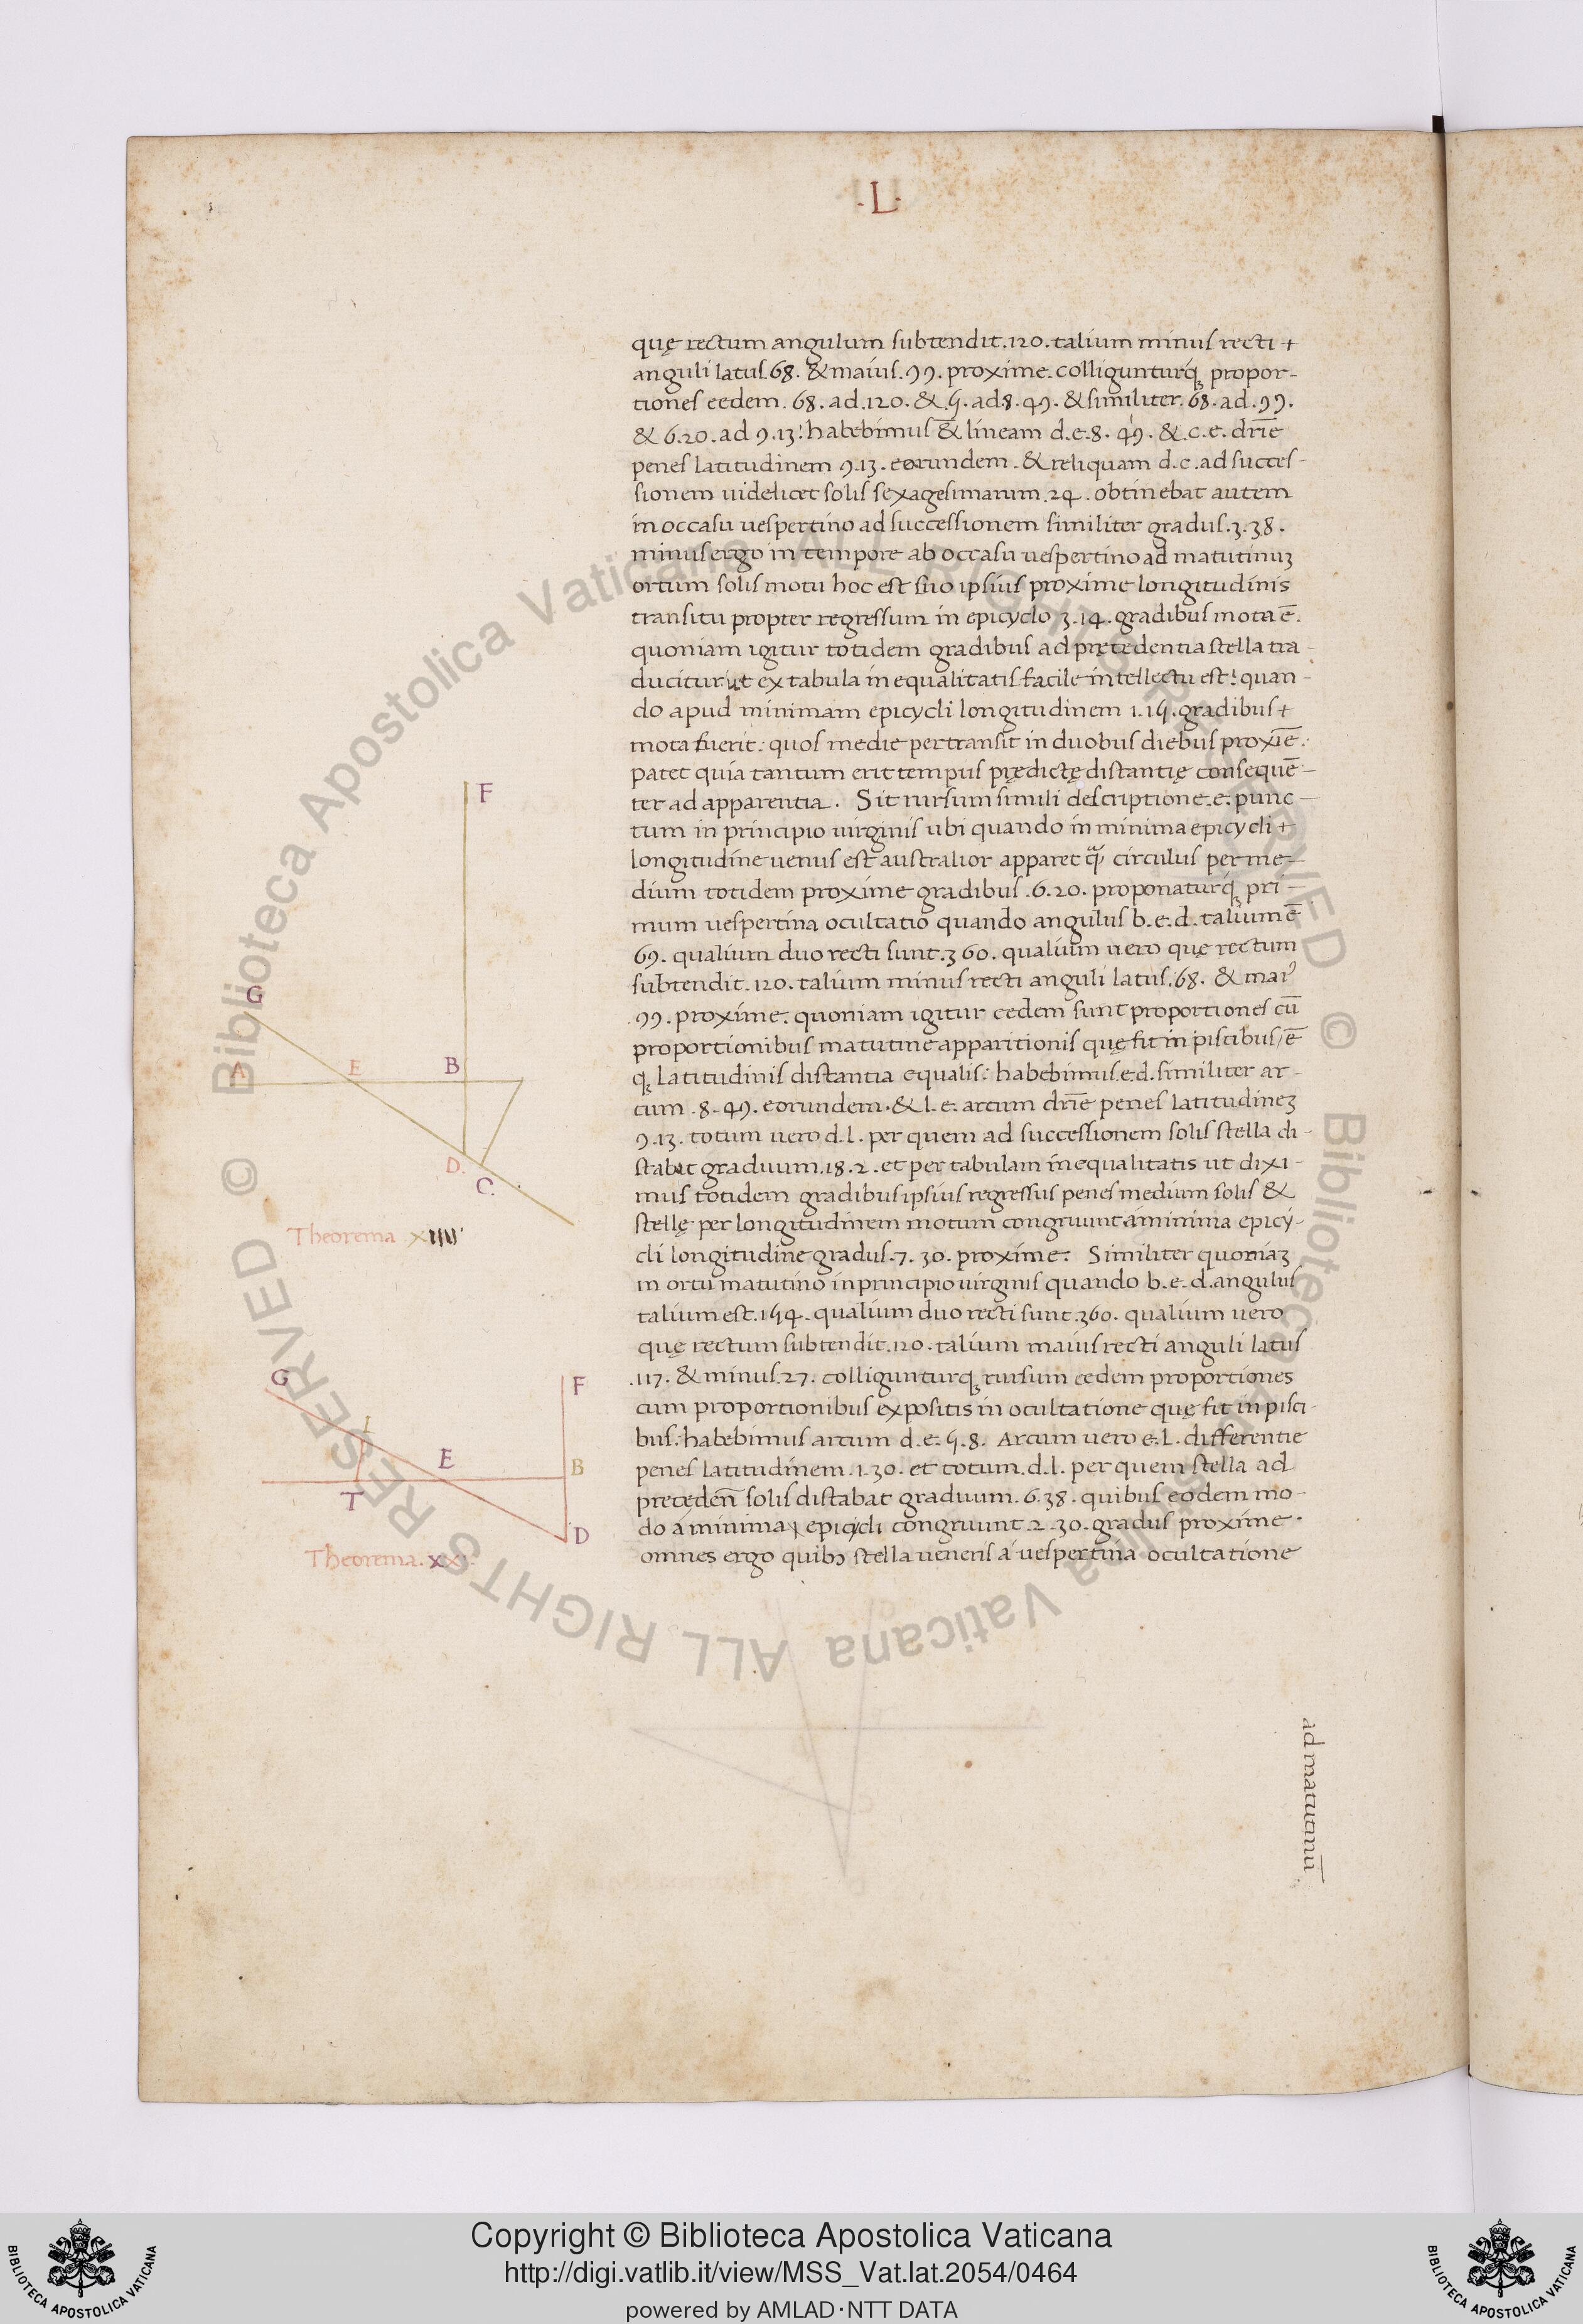 ·L·
quę rectum angulum subtendit .120. talium minus recti +
anguli latus .68. & maius .99. proxime. colligunturq́ꝫ propor-
tiones eedem. 68. ad .120. & .5. ad 8. 49. & similiter. 68. ad .99.
& 6.20. ad 9.13: habebimus & lineam d.e. 8. 49. & .c.e. dr̄ie
penes latitudinem 9.13. eorundem. & reliquam d.c. ad succes-
sionem uidelicet solis sexagesimarum .24. obtinebat autem
in occasu uespertino ad successionem similiter gradus .3.38.
minus ergo in tempore ab occasu uespertino ad matutinuꝫ
ortum solis motu hoc est suo ipsius proxime longitudinis
transitu propter regressum in epicyclo 3.14. gradibus mota ē.
quoniam igitur totidem gradibus ad precedentia stella tra-
ducitur ut ex tabula inequalitatis facile intellectu est: quan-
do apud minimam epicycli longitudinem 1.15. gradibus +
mota fuerit: quos medie pertransit in duobus diebus proxīe.
patet quia tantum erit tempus prędictę distantię consequē-
ter ad apparentia. Sit rursum simili descriptione .e. punc-
tum in principio uirginis ubi quando in minima epicycli +
longitudine uenus est australior apparet q̃ circulus per me-
dium totidem proxime gradibus .6.20. proponaturq́ꝫ pri-
mum uespertina ocultatio quando angulus b.e.d. talium ē
69. qualium duo recti sunt .360. qualium uero quę rectum
subtendit .120. talium minus recti anguli latus .68. & maiꝰ
.99. proxime. quoniam igitur eedem sunt proportiones cū
proportionibus matutine apparitionis quę fit in piscibus / ē
qꝫ latitudinis distantia equalis: habebimus .e.d. similiter ar-
cum .8.49. eorundem. & l.e. arcum dr̄ie penes latitudineꝫ
9.13. totum uero d.l. per quem ad successionem solis stella di-
stabat graduum .18.2. et per tabulam inequalitatis ut dixi-
mus totidem gradibus ipsius regressus penes medium solis &
stellę per longitudinem motum congruunt á minima epicy-
cli longitudine gradus .7. 30. proxime. Similiter quoniaꝫ
in ortu matutino in principio uirginis quando b.e.d. angulus
talium est .154. qualium duo recti sunt .360. qualium uero
quę rectum subtendit .120. talium maius recti anguli latus
.117. & minus .27. colligunturqꝫ rursum eedem proportiones
cum proportionibus expositis in ocultatione quę fit in pisci-
bus: habebimus arcum d.e. 5.8. Arcum uero e.l. differentie
penes latitudinem .1.30. et totum .d.l. per quem stella ad
precedeñ solis distabat graduum .6.38. quibus eodem mo-
do á minima epicicli congruunt .2.30. gradus proxime.
omnes ergo quibꝫ stella ueneris á uespertina ocultatione
ad matutinū
F
G
A E B
D. C.
Theorema XIIII
G F
L E B
T D
Theorema. XX
Copyright © Biblioteca Apostolica Vaticana
http://digi.vatlib.it/view/MSS_Vat.lat.2054/0464
powered by AMLAD·NTT DATA
BIBLIOTECA APOSTOLICA VATICANA
BIBLIOTECA APOSTOLICA VATICANA
© Biblioteca Apostolica Vaticana ALL RIGHTS RESERVED © Biblioteca Apostolica Vaticana ALL RIGHTS RESERVED